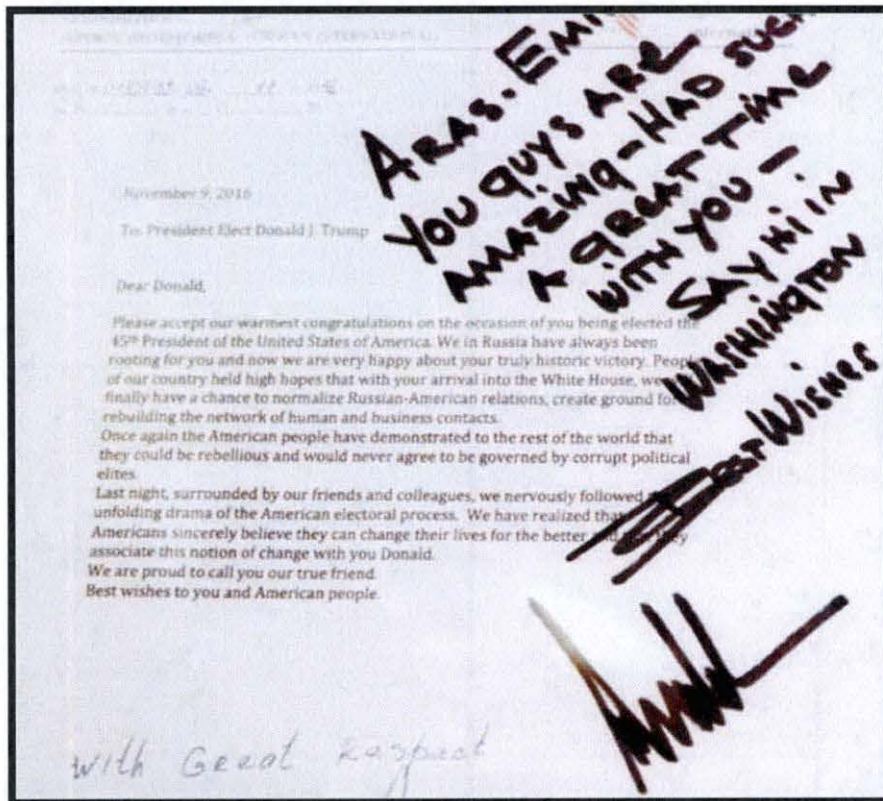 November 9, 2016
To: President Elect Donald J. Trump
Dear Donald,
Please accept our warmest congratulations on the occasion of you being elected the
45th President of the United States of America. We in Russia have always been
rooting for you and now we are very happy about your truly historic victory. People
of our country held high hopes that with your arrival into the White House, we
finally have a chance to normalize Russian-American relations, create ground for
rebuilding the network of human and business contacts.
Once again the American people have demonstrated to the rest of the world that
they could be rebellious and would never agree to be governed by corrupt political
elites.
Last night, surrounded by our friends and colleagues, we nervously followed
unfolding drama of the American electoral process. We have realized that
Americans sincerely believe they can change their lives for the better and they
associate this notion of change with you Donald.
We are proud to call you our true friend.
Best wishes to you and American people.
With Great Raspect
ARAS. EMI
YOU GUYS ARE
AMAZING - HAD SUCH
A GREAT TIME
WITH YOU -
SAY HI IN
WASHINGTON
BEST WISHES